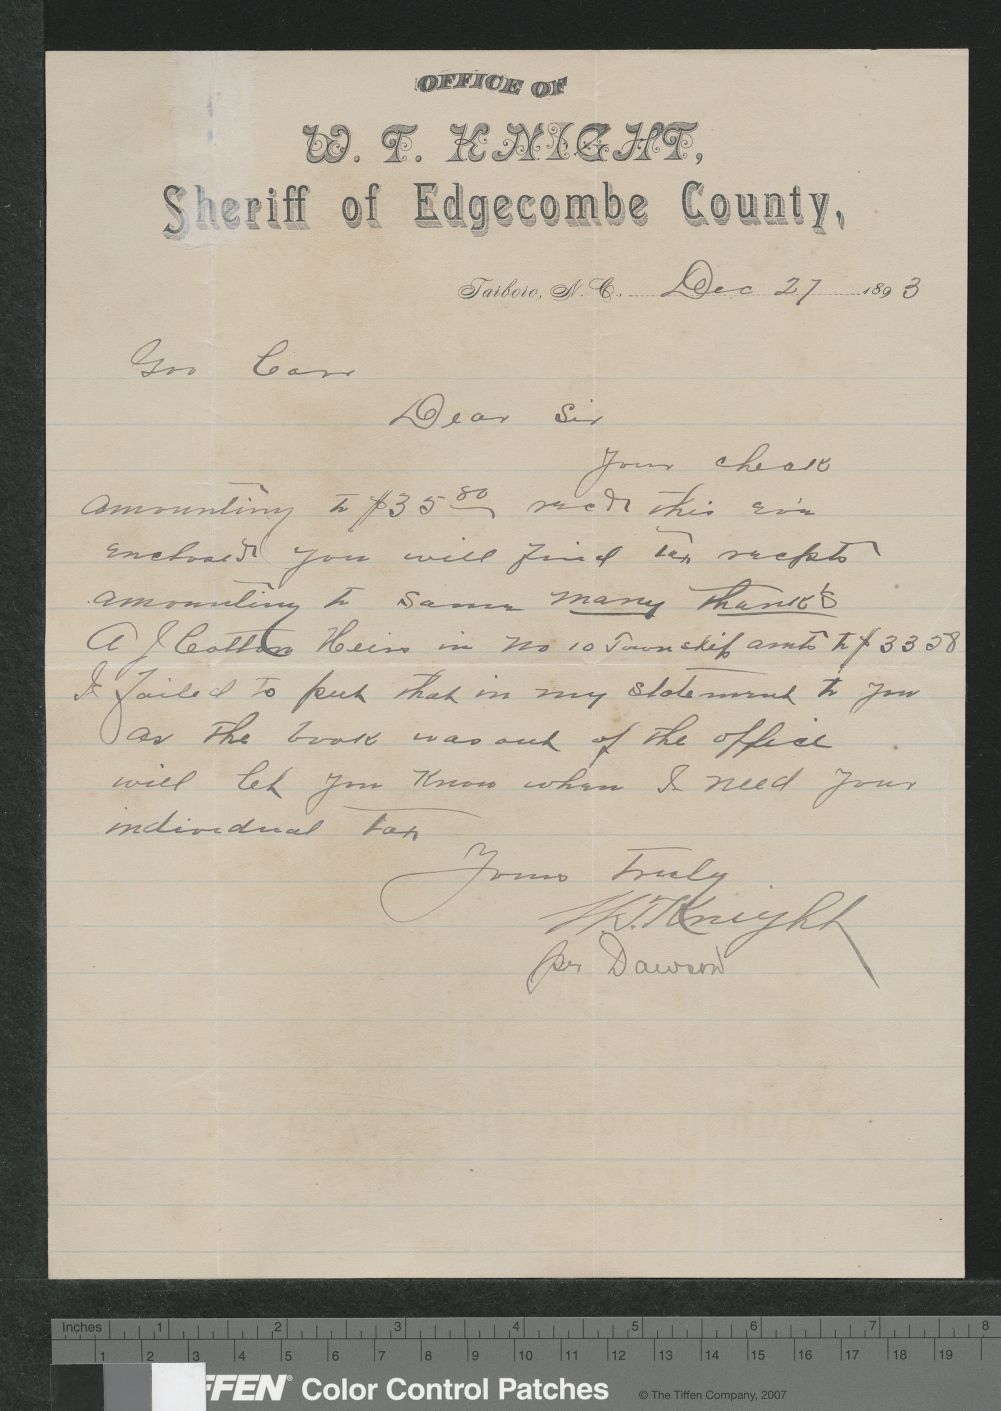 OFFICE OF
W. T. KNIGHT,
Sheriff of Edgecombe County,
Tarboro, N. C., Dec 27 1893
Gov Carr
Dear Sir
Your check
amounting to $35 80 recd this eve
enclosed you will find tax recpts
amounting to same many thanks
A J Cotton Heirs in No 10 Township amts to $33 58
I failed to put that in my statement to you
as the book was out of the office
will let you know when I need your
individual tax
Yours truly
W. T. Knight
per Dawson
Inches 1 2 3 4 5 6 7 8
1 2 3 4 5 6 7 8 9 10 11 12 13 14 15 16 17 18 19
FFEN® Color Control Patches © The Tiffen Company, 2007